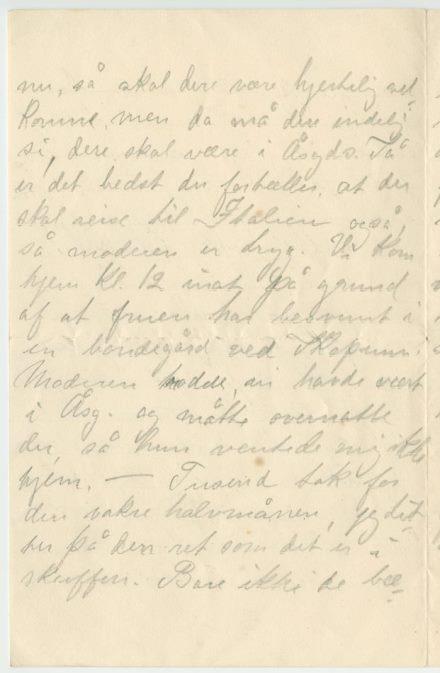 nu, så skal dere være hjertelig vel-
komne, men da må dere endelig
si, dere skal være i Åsgds. Så
er det bedst du fortæller, at du
skal reise til Italien også,
så moderen er tryg. Vi kom
hjem Kl. 12 inat på grund
af at fruen har bestemt i
en bondegård ved
Moderen trodde, vi havde vært
i Åsg. og måtte overnatte
der, så hun ventede mig ikke
hjem. — Tusend tak for
den vakre halvmånen, jeg
ser på den ret som det er i
skuffen. Bare ikke de bæ-